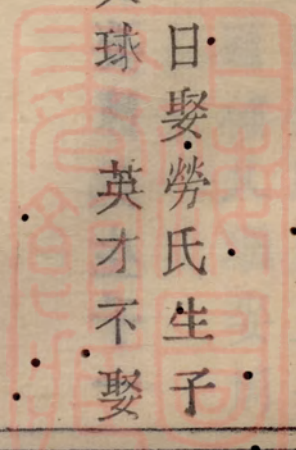 日娶勞氏生子
球 英才不娶